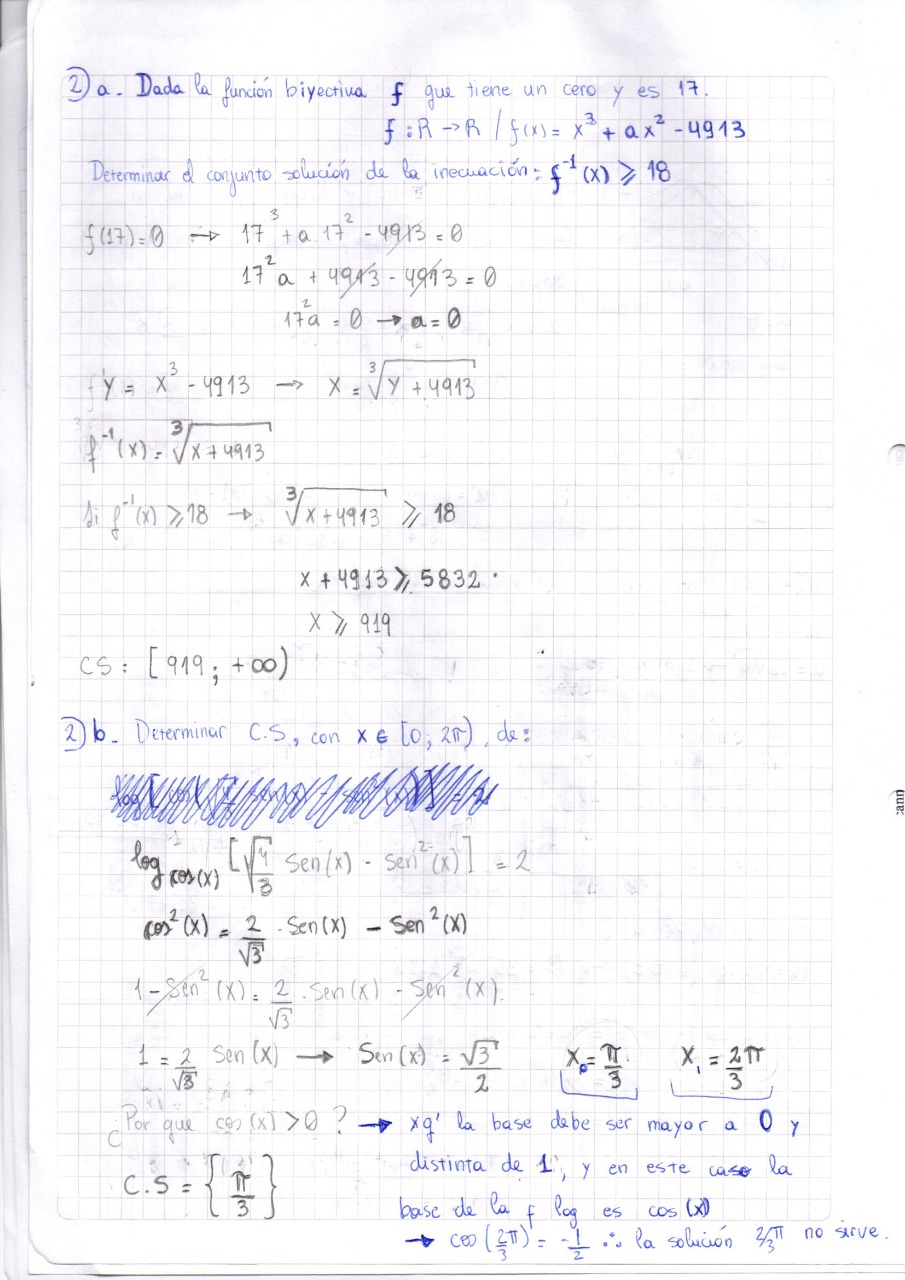 2) a. Dada la función biyectiva f que tiene un cero y es 17.
f : R → R / f(x) = x³ + ax² - 4913
Determinar el conjunto solución de la inecuación: f⁻¹(x) ⩾ 18
f(17) = 0 → 17³ + a 17² - 4913 = 0
17² a + 4913 - 4913 = 0
17² a = 0 → a = 0
y = x³ - 4913 → x = ∛(y + 4913)
f⁻¹(x) = ∛(x + 4913)
Si f⁻¹(x) ⩾ 18 → ∛(x + 4913) ⩾ 18
x + 4913 ⩾ 5832
x ⩾ 919
CS : [919 ; +∞)
2) b. Determinar C.S, con x ∈ [0 ; 2π), de:
log cos(x) [√(4/3) Sen(x) - Sen²(x)] = 2
cos²(x) = 2/√3 · Sen(x) - Sen²(x)
1 - Sen²(x) = 2/√3 · Sen(x) - Sen²(x)
1 = 2/√3 Sen(x) → Sen(x) = √3/2 x₀ = π/3 x₁ = 2π/3
¿Por que cos(x) > 0 ? → xq' la base debe ser mayor a 0 y
distinta de 1, y en este caso la
C.S = {π/3}
base de la f log es cos(x)
→ cos(2π/3) = -1/2 ∴ la solución 2/3π no sirve.